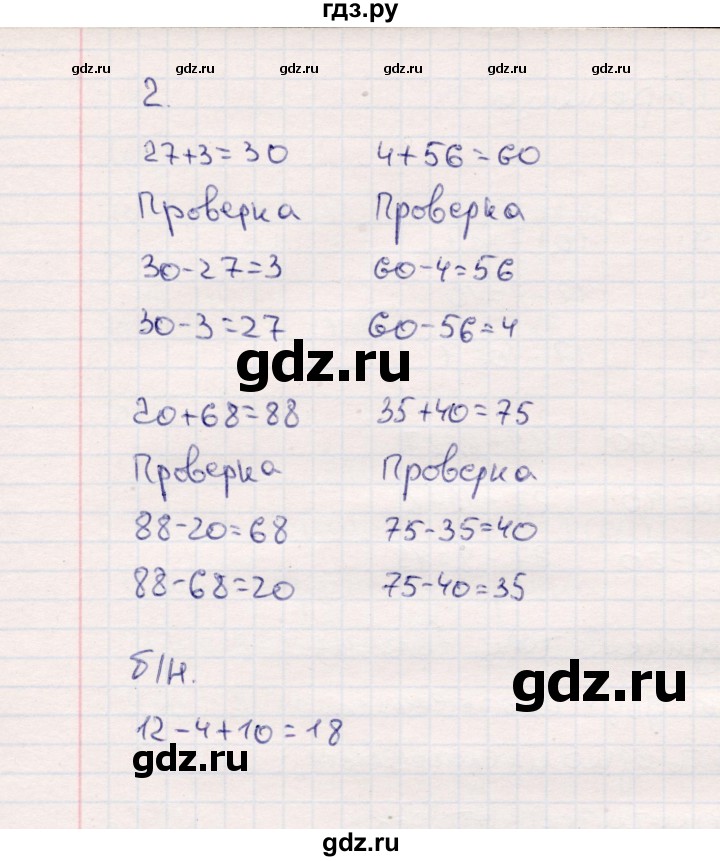 гдз.ру
gdz.ru gdz.ru gdz.ru gdz.ru gdz.ru gdz.ru
2.
27+3=30 4+56=60
Проверка Проверка
30-27=3 60-4=56
30-3=27 60-56=4
gdz.ru
20+68=88 35+40=75
Проверка Проверка
88-20=68 75-35=40
88-68=20 75-40=35
б/н.
gdz.ru
12-4+10=18
gdz.ru
gdz.ru